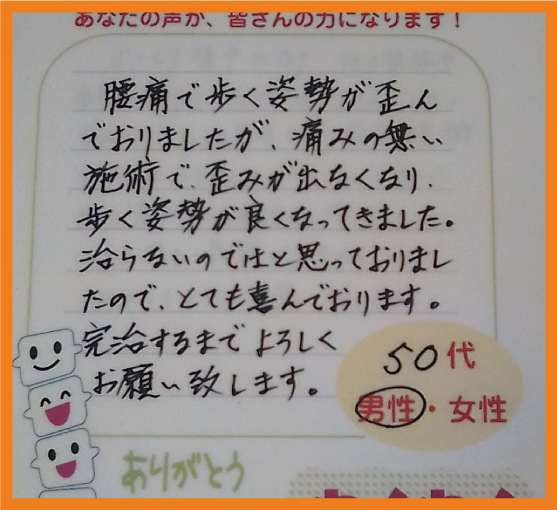 あなたの声が、皆さんの力になります！
腰痛で歩く姿勢が歪ん
でおりましたが、痛みの無い
施術で、歪みが出なくなり、
歩く姿勢が良くなってきました。
治らないのではと思っておりまし
たので、とても喜んでおります。
完治するまでよろしく
お願い致します。
50代
男性・女性
ありがとう